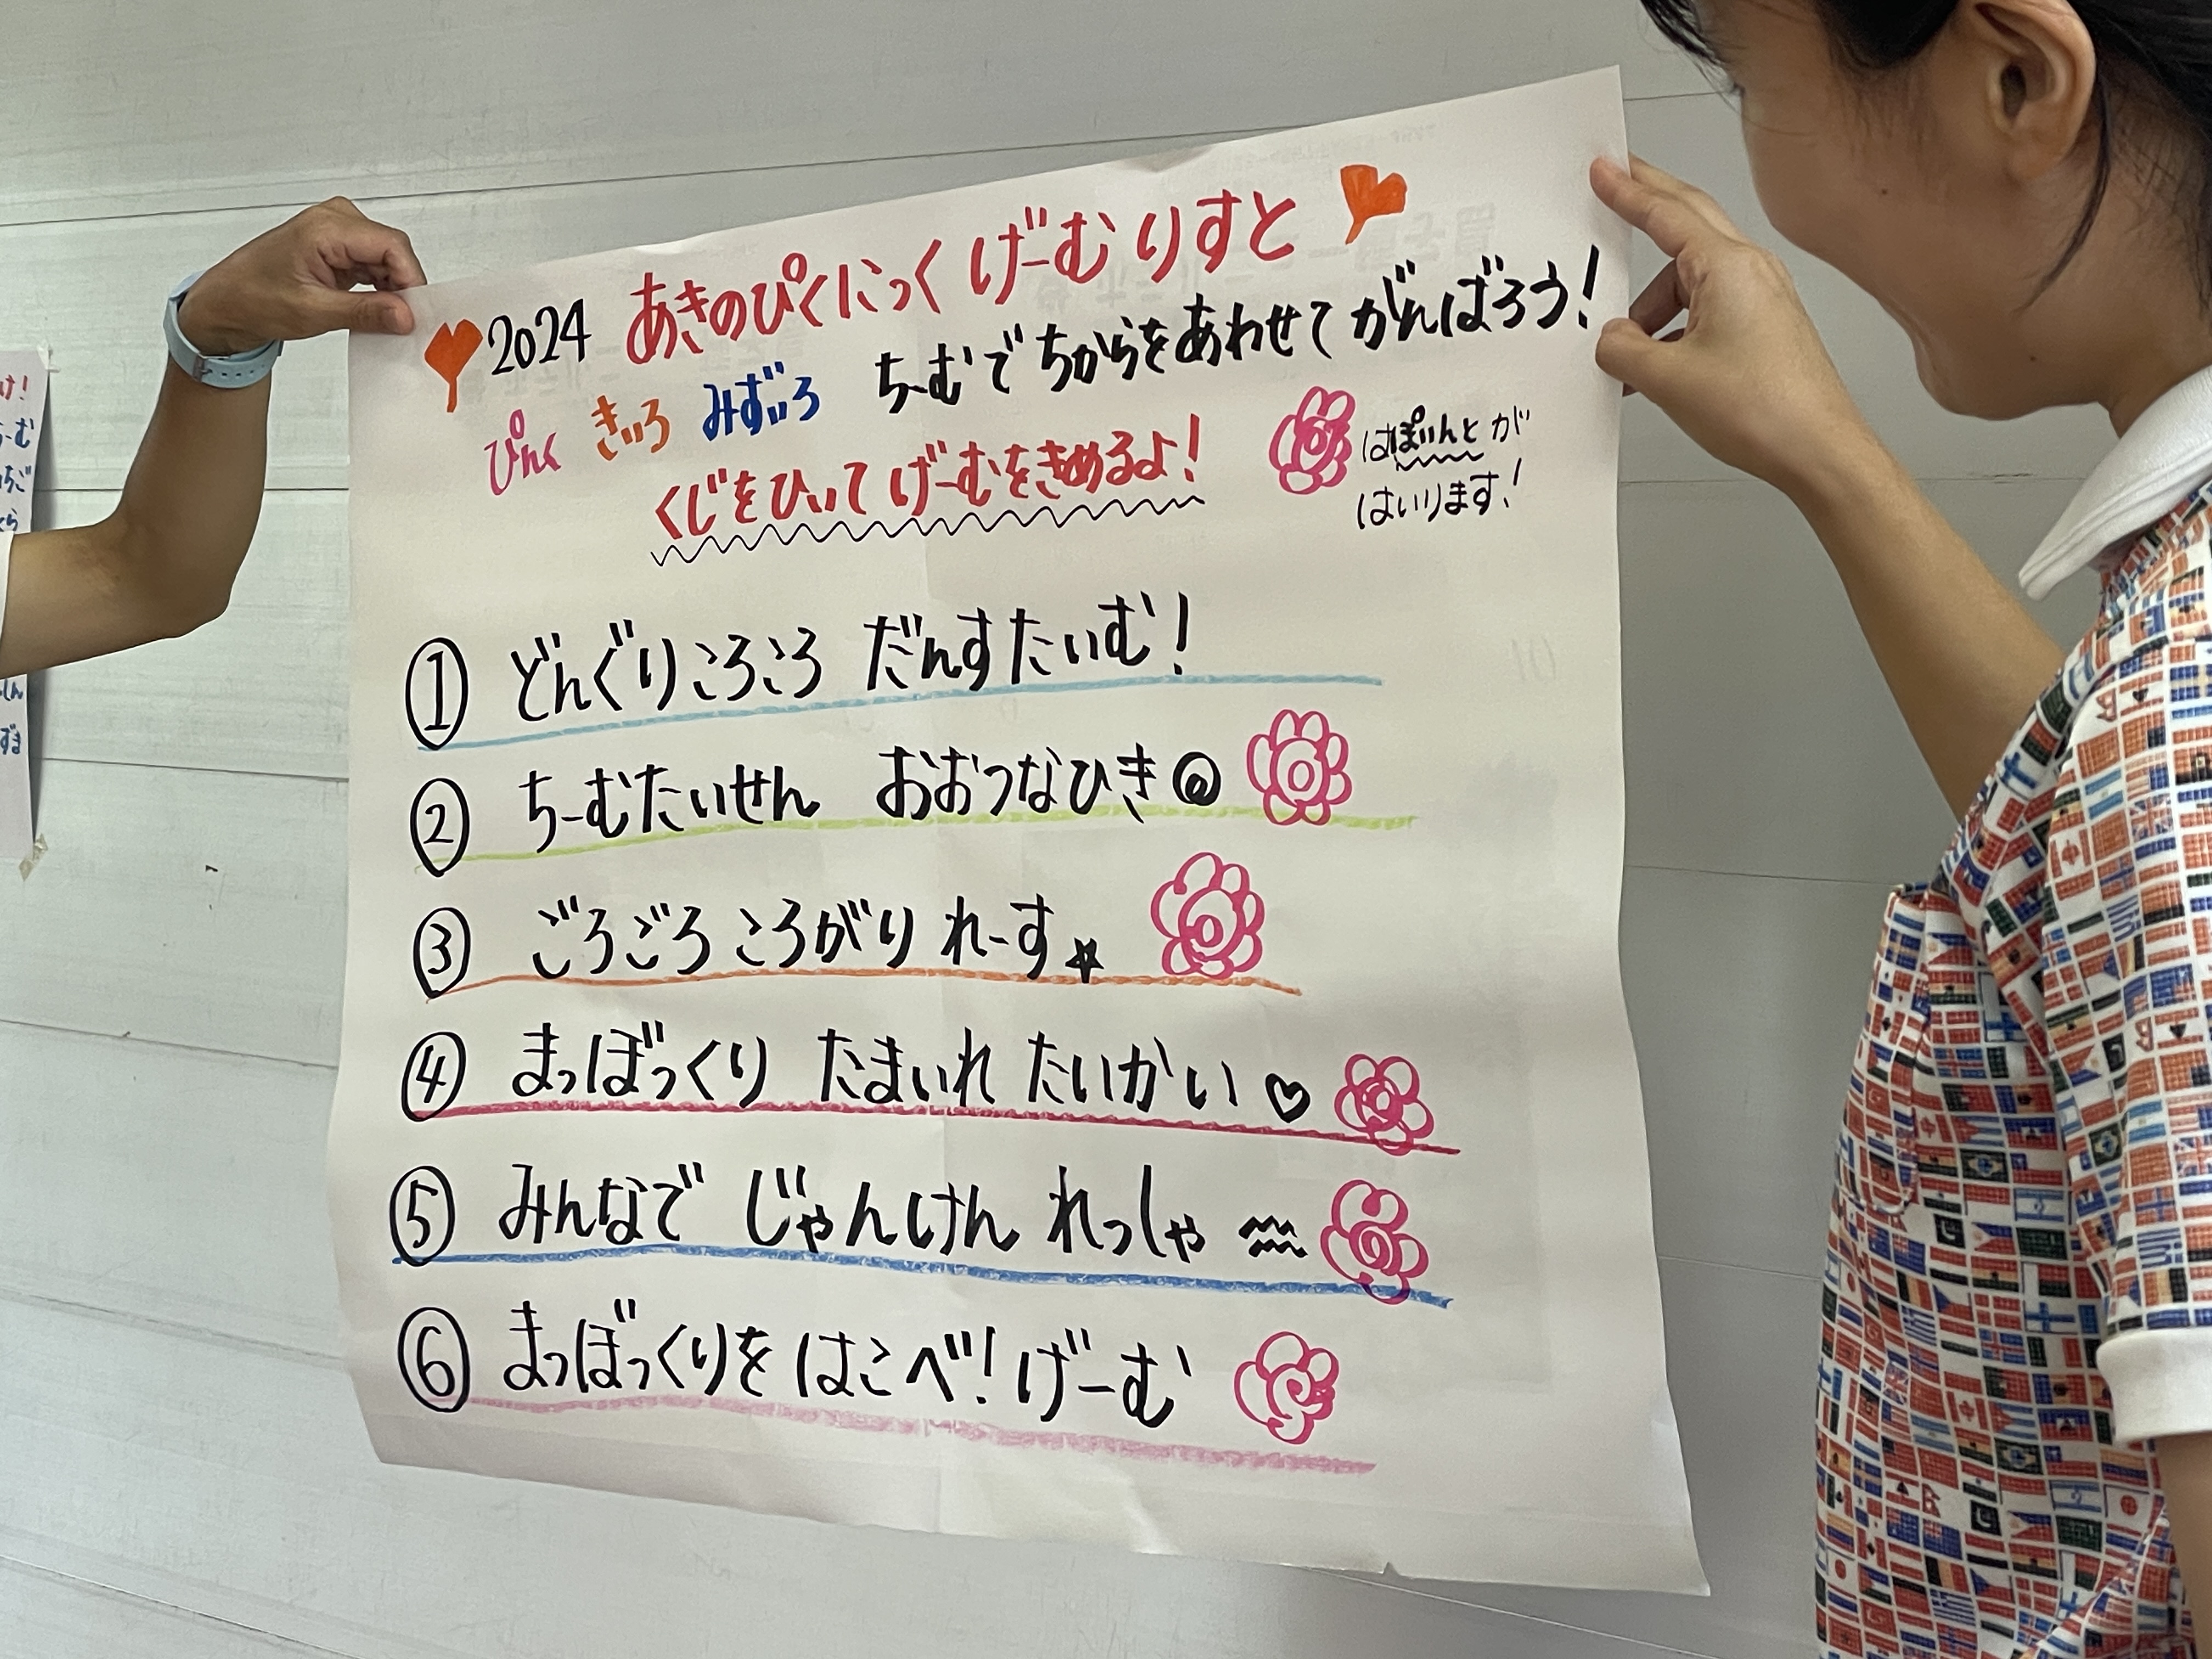 2024 あきのぴくにっく げーむりすと
ぴんく きいろ みずいろ ちーむで ちからをあわせて がんばろう!
くじをひいて げーむをきめるよ!
はぽいんとが
はいります!
① どんぐりころころ だんすたいむ!
② ちーむたいせん おおつなひき
③ ごろごろ ころがり れーす
④ まつぼっくり たまいれ たいかい♡
⑤ みんなで じゃんけん れっしゃ
⑥ まつぼっくりを はこべ! げーむ